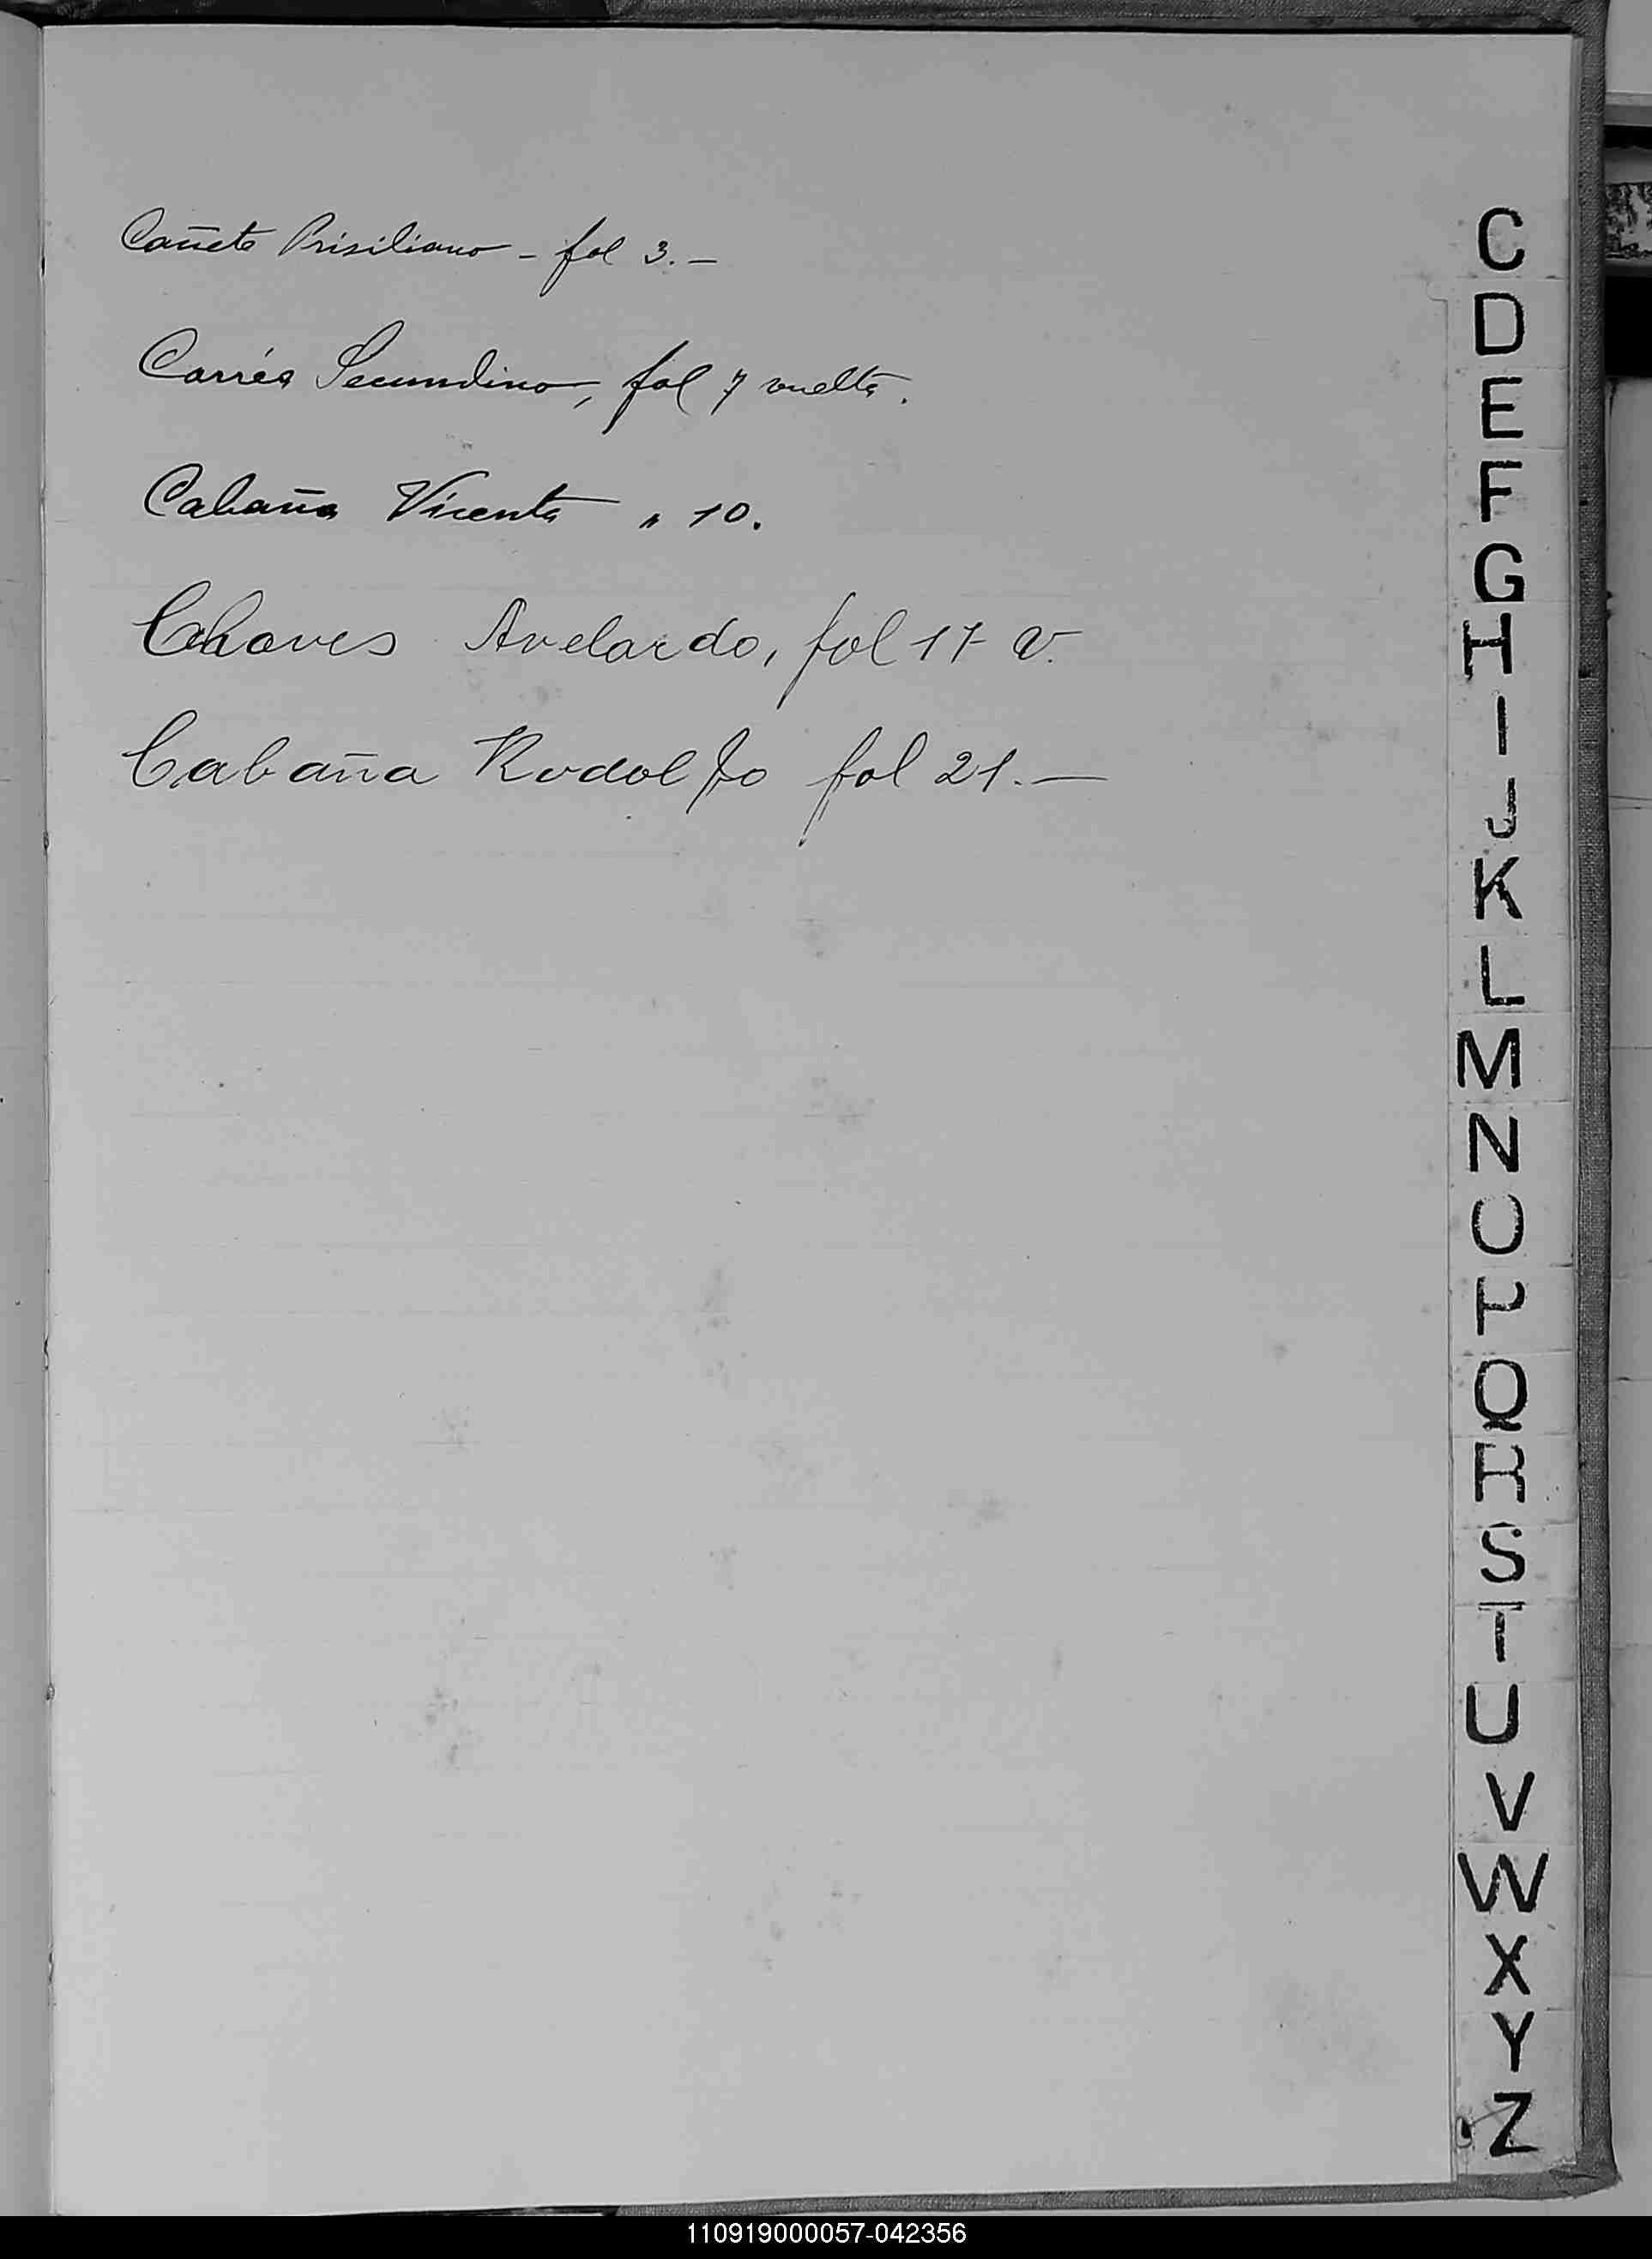 Cañete Prisiliano - fol 3. -
Carrés Secundino, fol 7 vuelta.
Cabaña Vicenta " 10.
Chaves Avelardo, fol 17 v.
Cabaña Rodolfo fol 21. -
C
D
E
F
G
H
I
J
K
L
M
N
O
P
Q
R
S
T
U
V
W
X
Y
Z
110919000057-042356